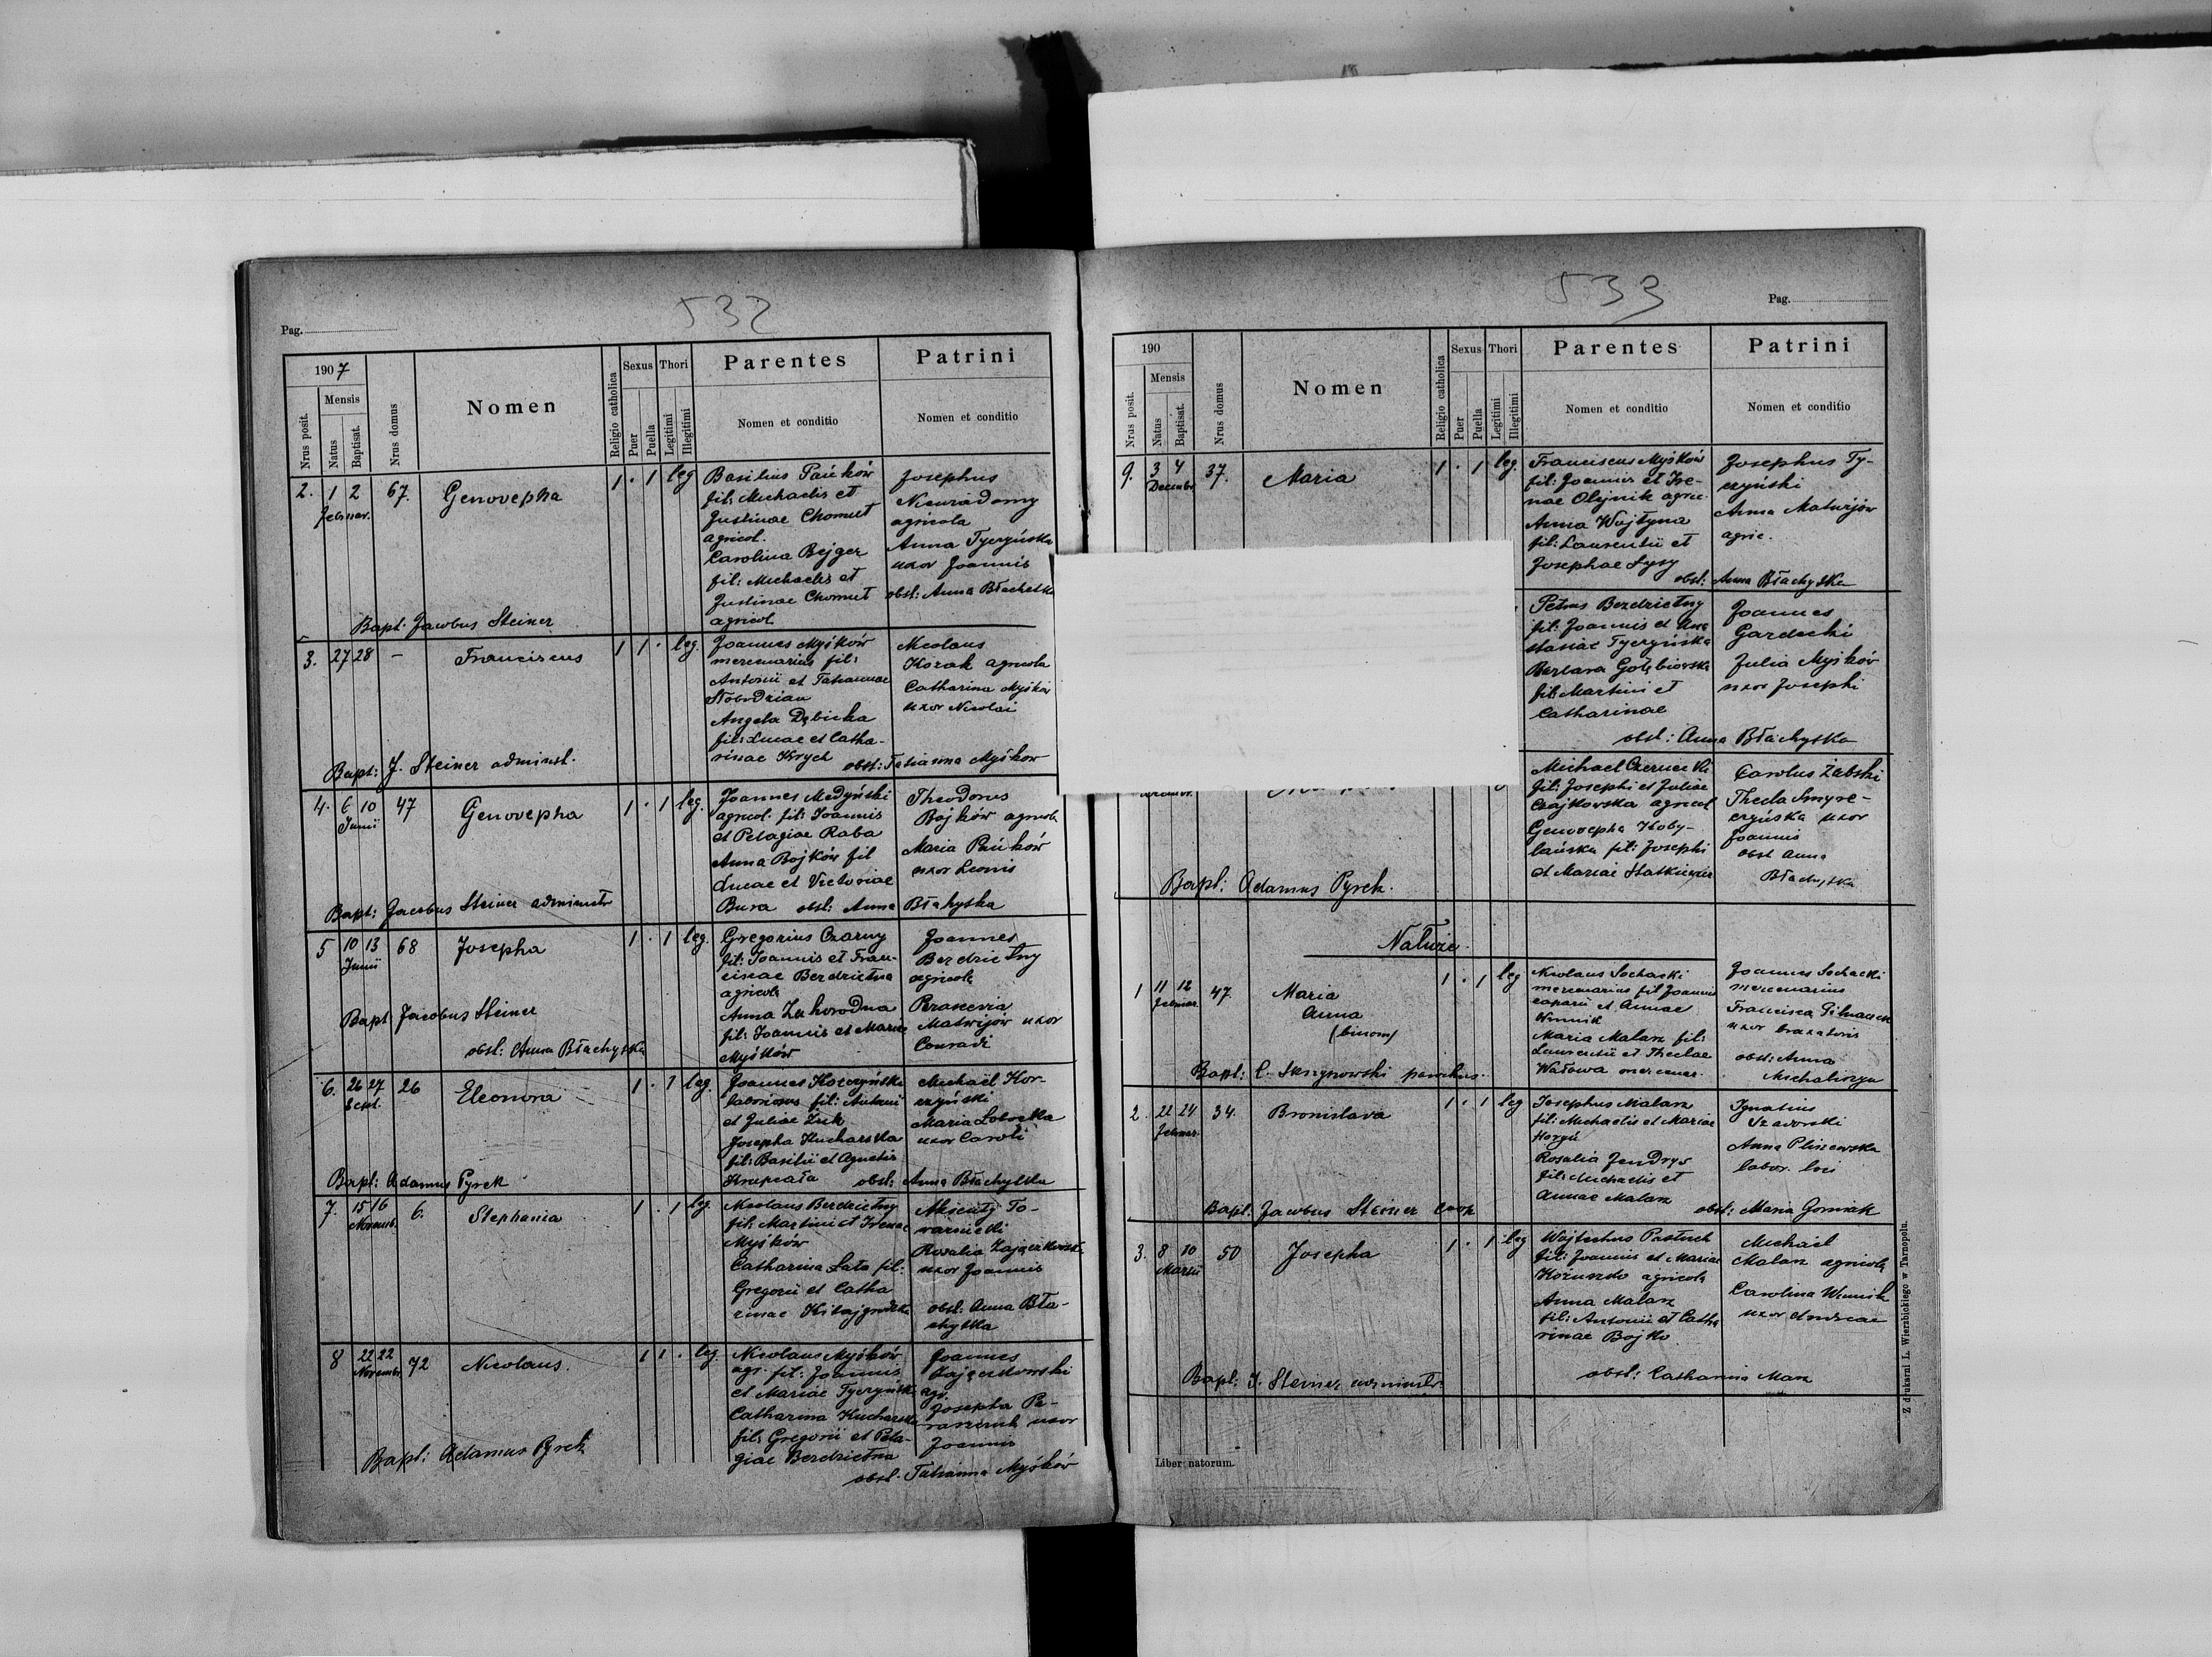 532
Pag.
1907
Nrus posit.
Mensis
Natus
Baptisat.
Nrus domus
Nomen
Religio catholica
Sexus
Puer
Puella
Thori
Legitimi
Illegitimi
Parentes
Nomen et conditio
Patrini
Nomen et conditio
2. 1 2 67. Genovepha 1 · 1 leg
Februar.
Basilius Pańków
fil: Michaelis et
Justinae Chomut
agricol.
Carolina Bejger
fil: Michaelis et
Justinae Chomut
agricol.
Josephus
Niewiadomy
agricola
Anna Tyczyńska
uxor Joannis
obst: Anna Błachytka
Bapt. Jacobus Steiner
3. 27 28 – Franciscus 1 1 · leg.
Joannes Myśków
mercenarius fil:
Antonii et Tatiannae
Słobodzian
Angela Dębicka
fil: Lucae et Catha-
rinae Krych
Nicolaus
Kozak agricola
Catharina Myśków
uxor Nicolai
obst: Tatianna Myśków
Bapt: J. Steiner administ.
4. 6 10 47 Genovepha 1 · 1 leg.
Junii
Joannes Medyński
agricol. fil: Joannis
et Pelagiae Raba
Anna Bojków fil
Lucae et Victoriae
Bura
Theodorus
Bojków agricola
Maria Pańków
uxor Leonis
obst: Anna Błachytka
Bapt: Jacobus Steiner administr
5 10 13 68 Josepha 1 · 1 leg.
Junii
Gregorius Czarny
fil: Joannis et Fran-
ciscae Berdrictna
agricola
Anna Zahorodna
fil: Joannis et Mariae
Myśków
Joannes
Bezdrietny
agricola
Parascevia
Matwijow uxor
Conradi
Bapt Jacobus Steiner
obst: Anna Błachytka
6. 26 27 26 Eleonora 1 · 1 leg.
Sept.
Joannes Korczyński
laboriosus fil: Antonii
et Juliae Żuk
Josepha Kucharska
fil: Basilii et Agnetis
Krupiała
Michael Kor-
czyński
Maria Łotocka
uxor Caroli
obst: Anna Błachytka
Bapt: Adamus Pyrek
7. 15 16 6. Stephania 1 · 1 leg.
Novemb.
Nicolaus Berdrictny
fil: Martini et Irenae
Myśków
Catharina Łata fil:
Gregorii et Catha
rinae Kitajgrodzka
Aksenty To-
warnicki
Rosalia Zajączkowska
uxor Joannis
obst: Anna Bła-
chytka
8 22 22 72 Nicolaus. 1 1 · leg.
Novembr.
Nicolaus Myśków
agr. fil: Joannis
et Mariae Tyczyńska
Catharina Kucharska
fil: Gregorii et Pela-
giae Berdrictna
Joannes
Zajączkowski
agr.
Josepha Pa-
raszczuk uxor
Joannis
obst. Tatianna Myśków
Bapt: Adamus Pyrek
533
Pag.
190
Nrus posit.
Mensis
Natus
Baptisat.
Nrus domus
Nomen
Religio catholica
Sexus
Puer
Puella
Thori
Legitimi
Illegitimi
Parentes
Nomen et conditio
Patrini
Nomen et conditio
9. 3 4 37. Maria 1 · 1 leg.
Decembr
Franciscus Myśków
fil: Joannis et Ire-
nae Olejnik agric.
Anna Wojtyna
fil: Laurentii et
Josephae Łysy
Josephus Ty-
czyński
Anna Matwijów
agric.
obst: Anna Błachytka
Petrus Bezdrietny
fil: Joannis et Ana
stasiae Tyczyńska
Barbara Gołębiowska
fil: Martini et
Catharinae
Joannes
Gardecki
Julia Myśków
uxor Josephi
obst: Anna Błachytka
Michael Czernecki
fil: Josephi et Juliae
Czajkowska agricol
Genovepha Koby-
lańska fil: Josephi
et Mariae Statkiewicz
Carolus Żabski
Thecla Smyre-
czyńska uxor
Joannis
obst Anna
Błachytka
Bapt: Adamus Pyrek.
Natuze
1 11 12 47. Maria 1 · 1 leg
Februar.
Anna
(binom)
Nicolaus Sochacki
mercenarius fil Joannis
et Annae
Winnik
Maria Malarz fil:
Laurentii et Theclae
Wałowa mercenar.
Joannes Sochacki
mercenarius
Francisca
uxor
obst: Anna
Bapt: parochus.
2. 22 24 34. Bronislava 1 · 1 leg
Februar.
Josephus Malarz
fil: Michaelis et Mariae
Rosalia Jendrys
fil: Michaelis et
Annae Malarz
Ignatius
Anna Pliszewska
labor. loci
obst: Maria Gorniak
Bapt: Jacobus Steiner coop
3. 8 10 50 Josepha 1 · 1 leg
Martii
Wojtechus Pastuch
fil: Joannis et Mariae
agricola
Anna Malarz
fil: Antonii et Catha
rinae Bojko
Michael
Malarz agricola
Carolina Winnik
uxor Andreae
obst: Catharina Marz
Bapt: J. Steiner administr.
Liber natorum.
Z drukarni L. Wierzbickiego w Tarnopolu.